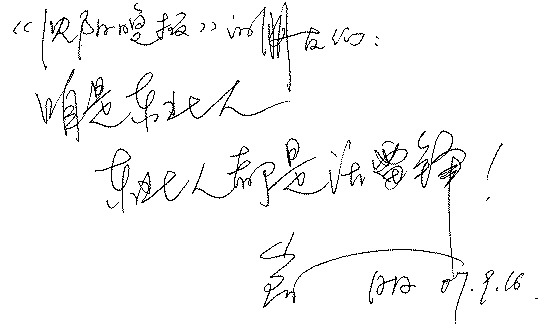 《沈阳晚报》的朋友们：
咱是东北人
东北人都是活雷锋！
07.9.16